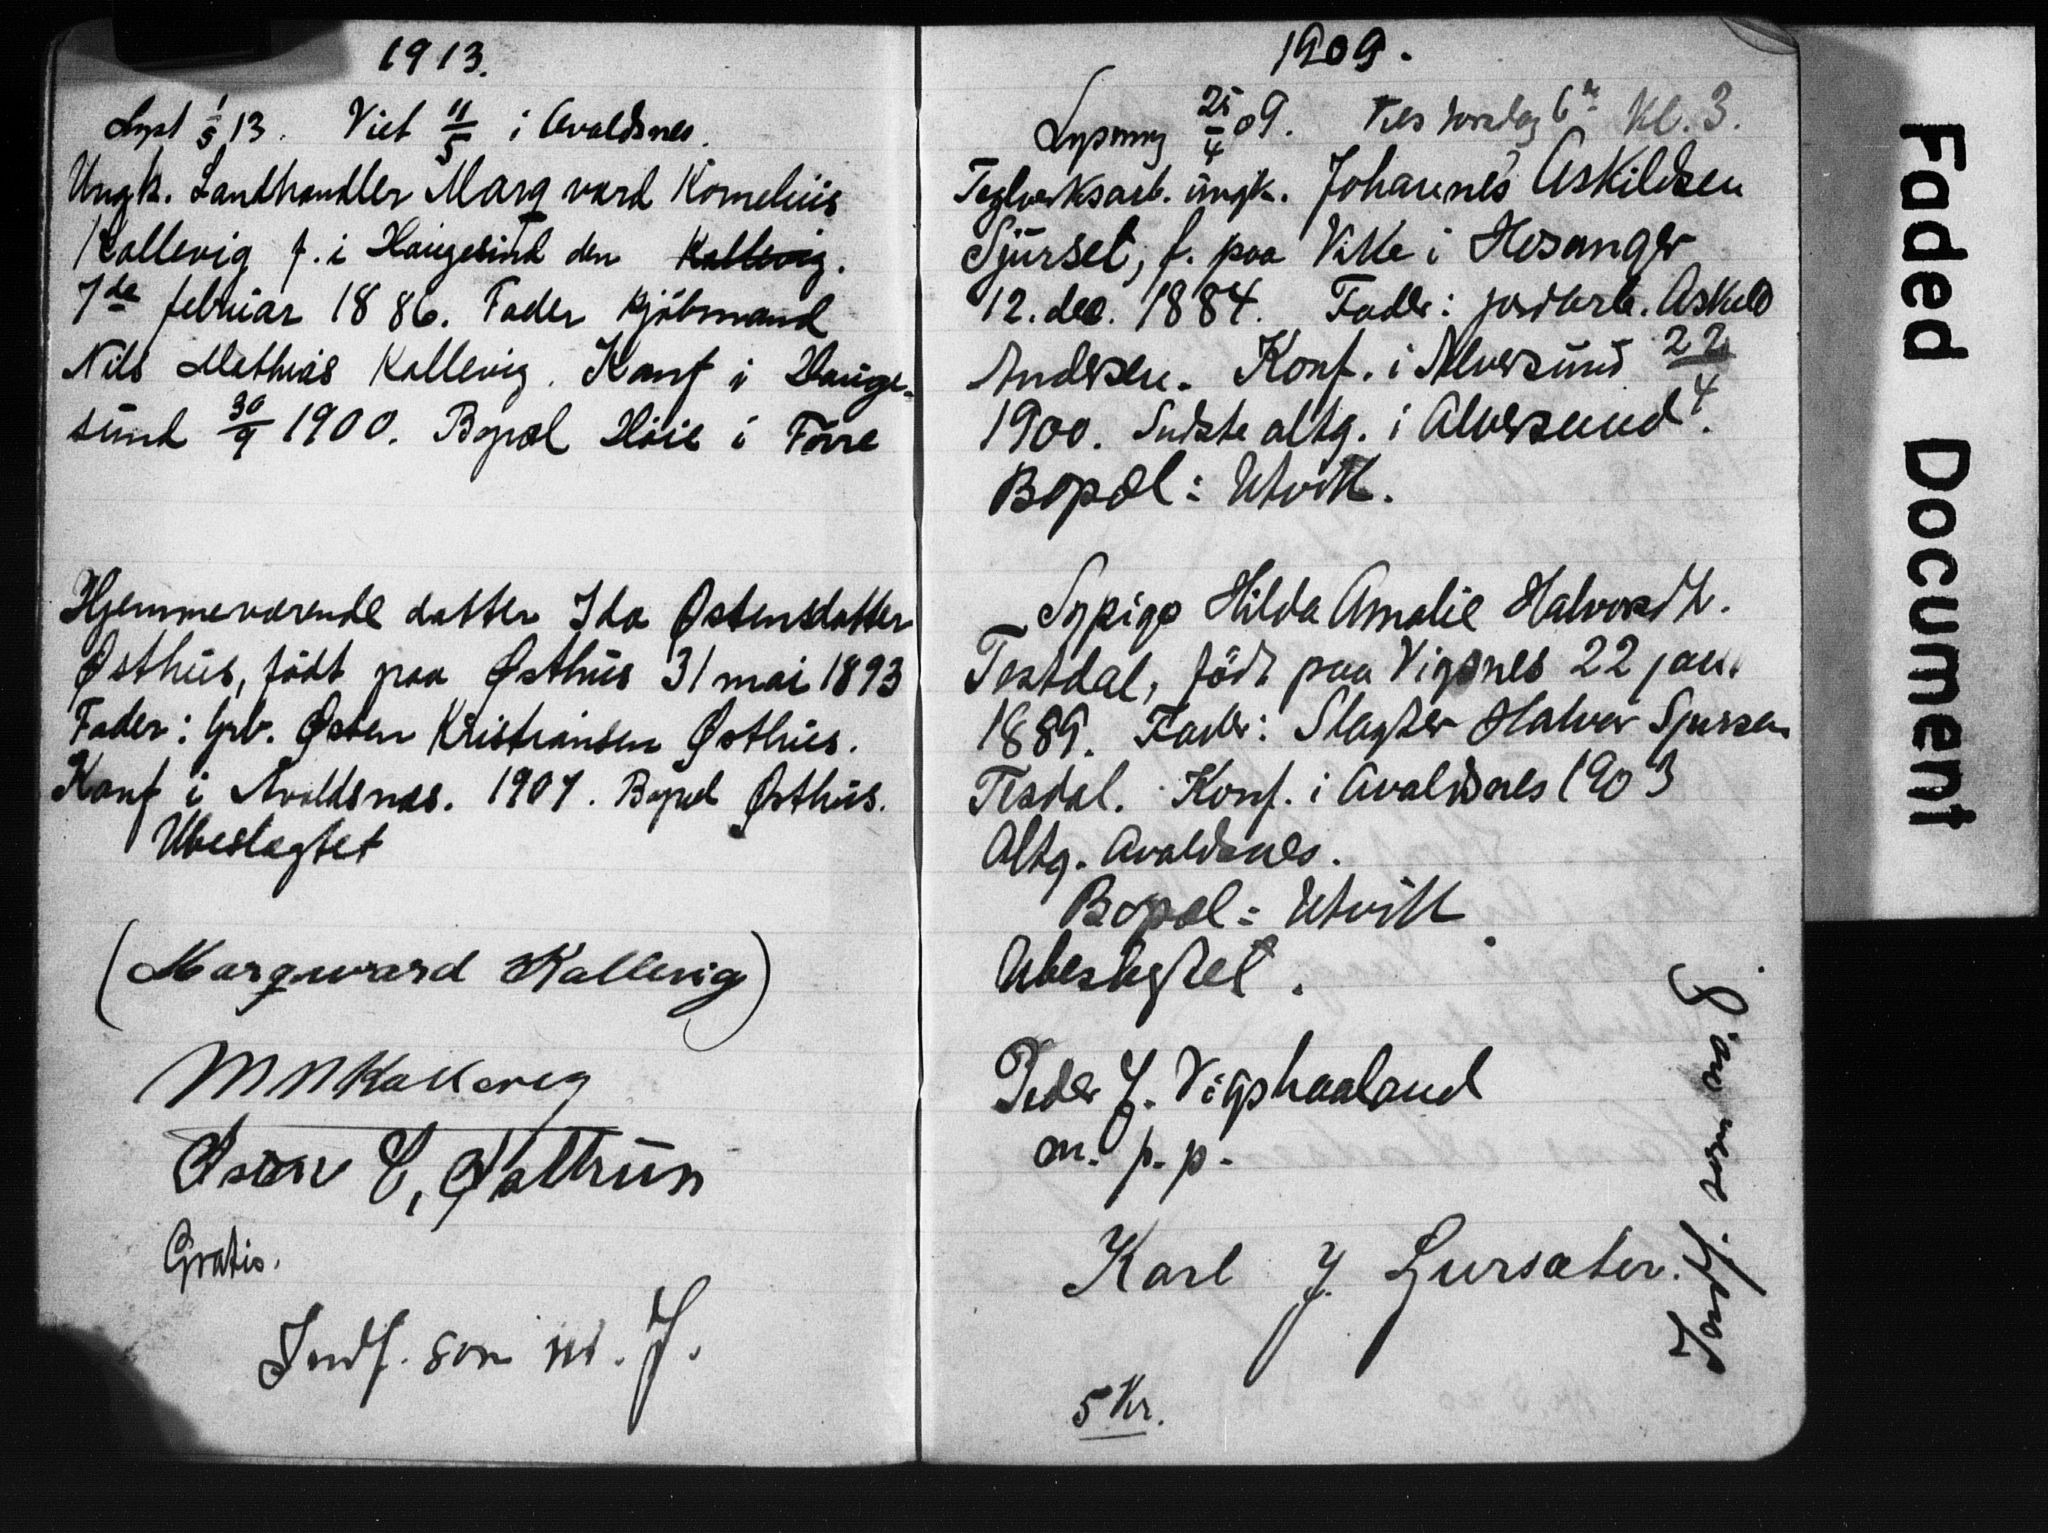 1913.
Lyst 1/5 13. Viet 11/5 i Avaldsnes.
Ungk. Landhandler Marqvard Kornelius
Kallevig f. i Haugesund den Kallevig.
7de februar 1886. Fader kjøbmand
Nils Mathias Kallevig. Konf i Hauge-
sund 30/9 1900. Bopæl Høie i Førre
Hjemmeværende datter Ida Østensdatter
Østhus, født paa Østhus 31 mai 1893
Fader: Grb. Østen Kristiansen Østhus.
Konf i Avaldsnes. 1907. Bopæl Østhus.
Ubeslægtet
(Marqward Kallevig)
M N Kallevig
Østhus
Gratis.
Indf. som nr. 7.
1909.
Lysning 25/4 09. Vies torsdag 6te Kl. 3.
Teglverksarb. ungk. Johannes Askildsen
Sjurset, f. paa Vikke i Hosanger
12. dec. 1884. Fader: jordarb. Askild
Andersen. Konf. i Alversund 22/4
1900. Sidste altg. i Alversund.
Bopæl: Utvik.
Sypige Hilda Amalie Halvorsdtr.
Testdal, född paa Vigsnes 22 jan.
1889. Fader: Slagter Halvor Sjursen
Tesdal. Konf. i Avaldsnes 1903
Altg. Avaldsnes.
Bopæl: Utvik
Ubeslegtet.
Peder J. Vigshaaland
m. p. p.
Karl J. Gursæter.
5 Kr.
Indf. som nr. 9
Faded Document